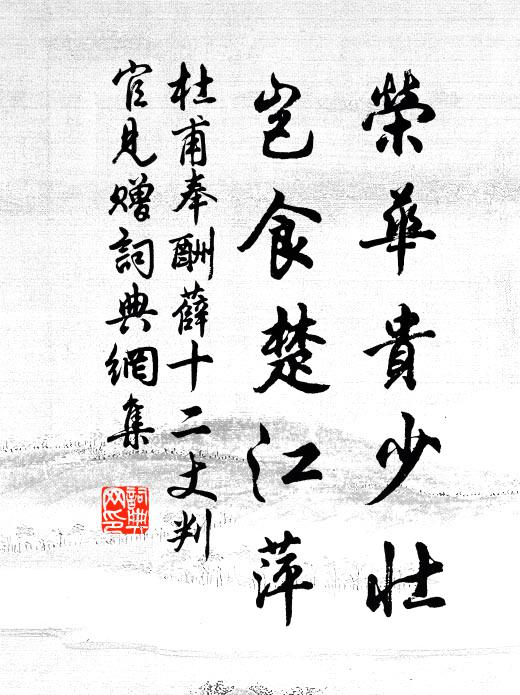 榮華貴少壯
豈食楚江萍
杜甫奉酬薛十二丈判
官見贈詞典網集
詞典网印